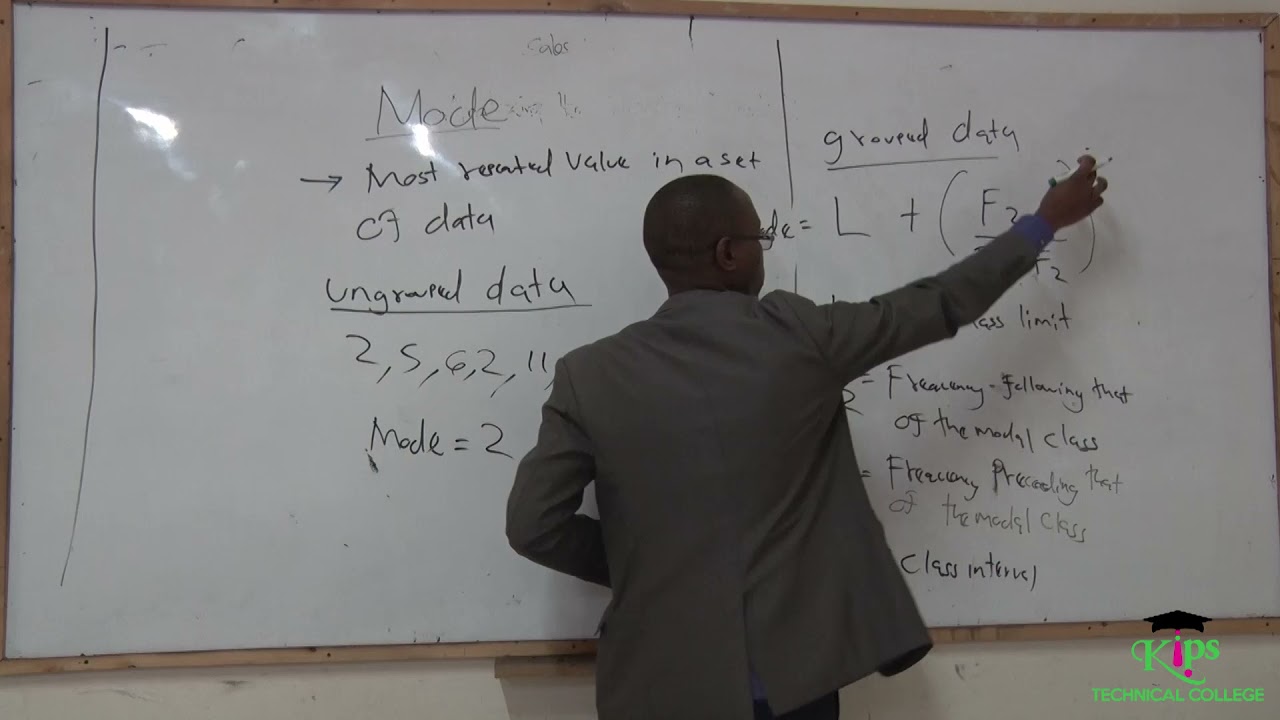 Mode
→ Most repeated value in a set
of data
ungrouped data
2, 5, 6, 2, 11,
Mode = 2
grouped data
= L + ( F2
F2 )
class limit
= Frequency following that
of the modal class
= Frequency Preceding that
of the modal class
Class interval
Kips
TECHNICAL COLLEGE